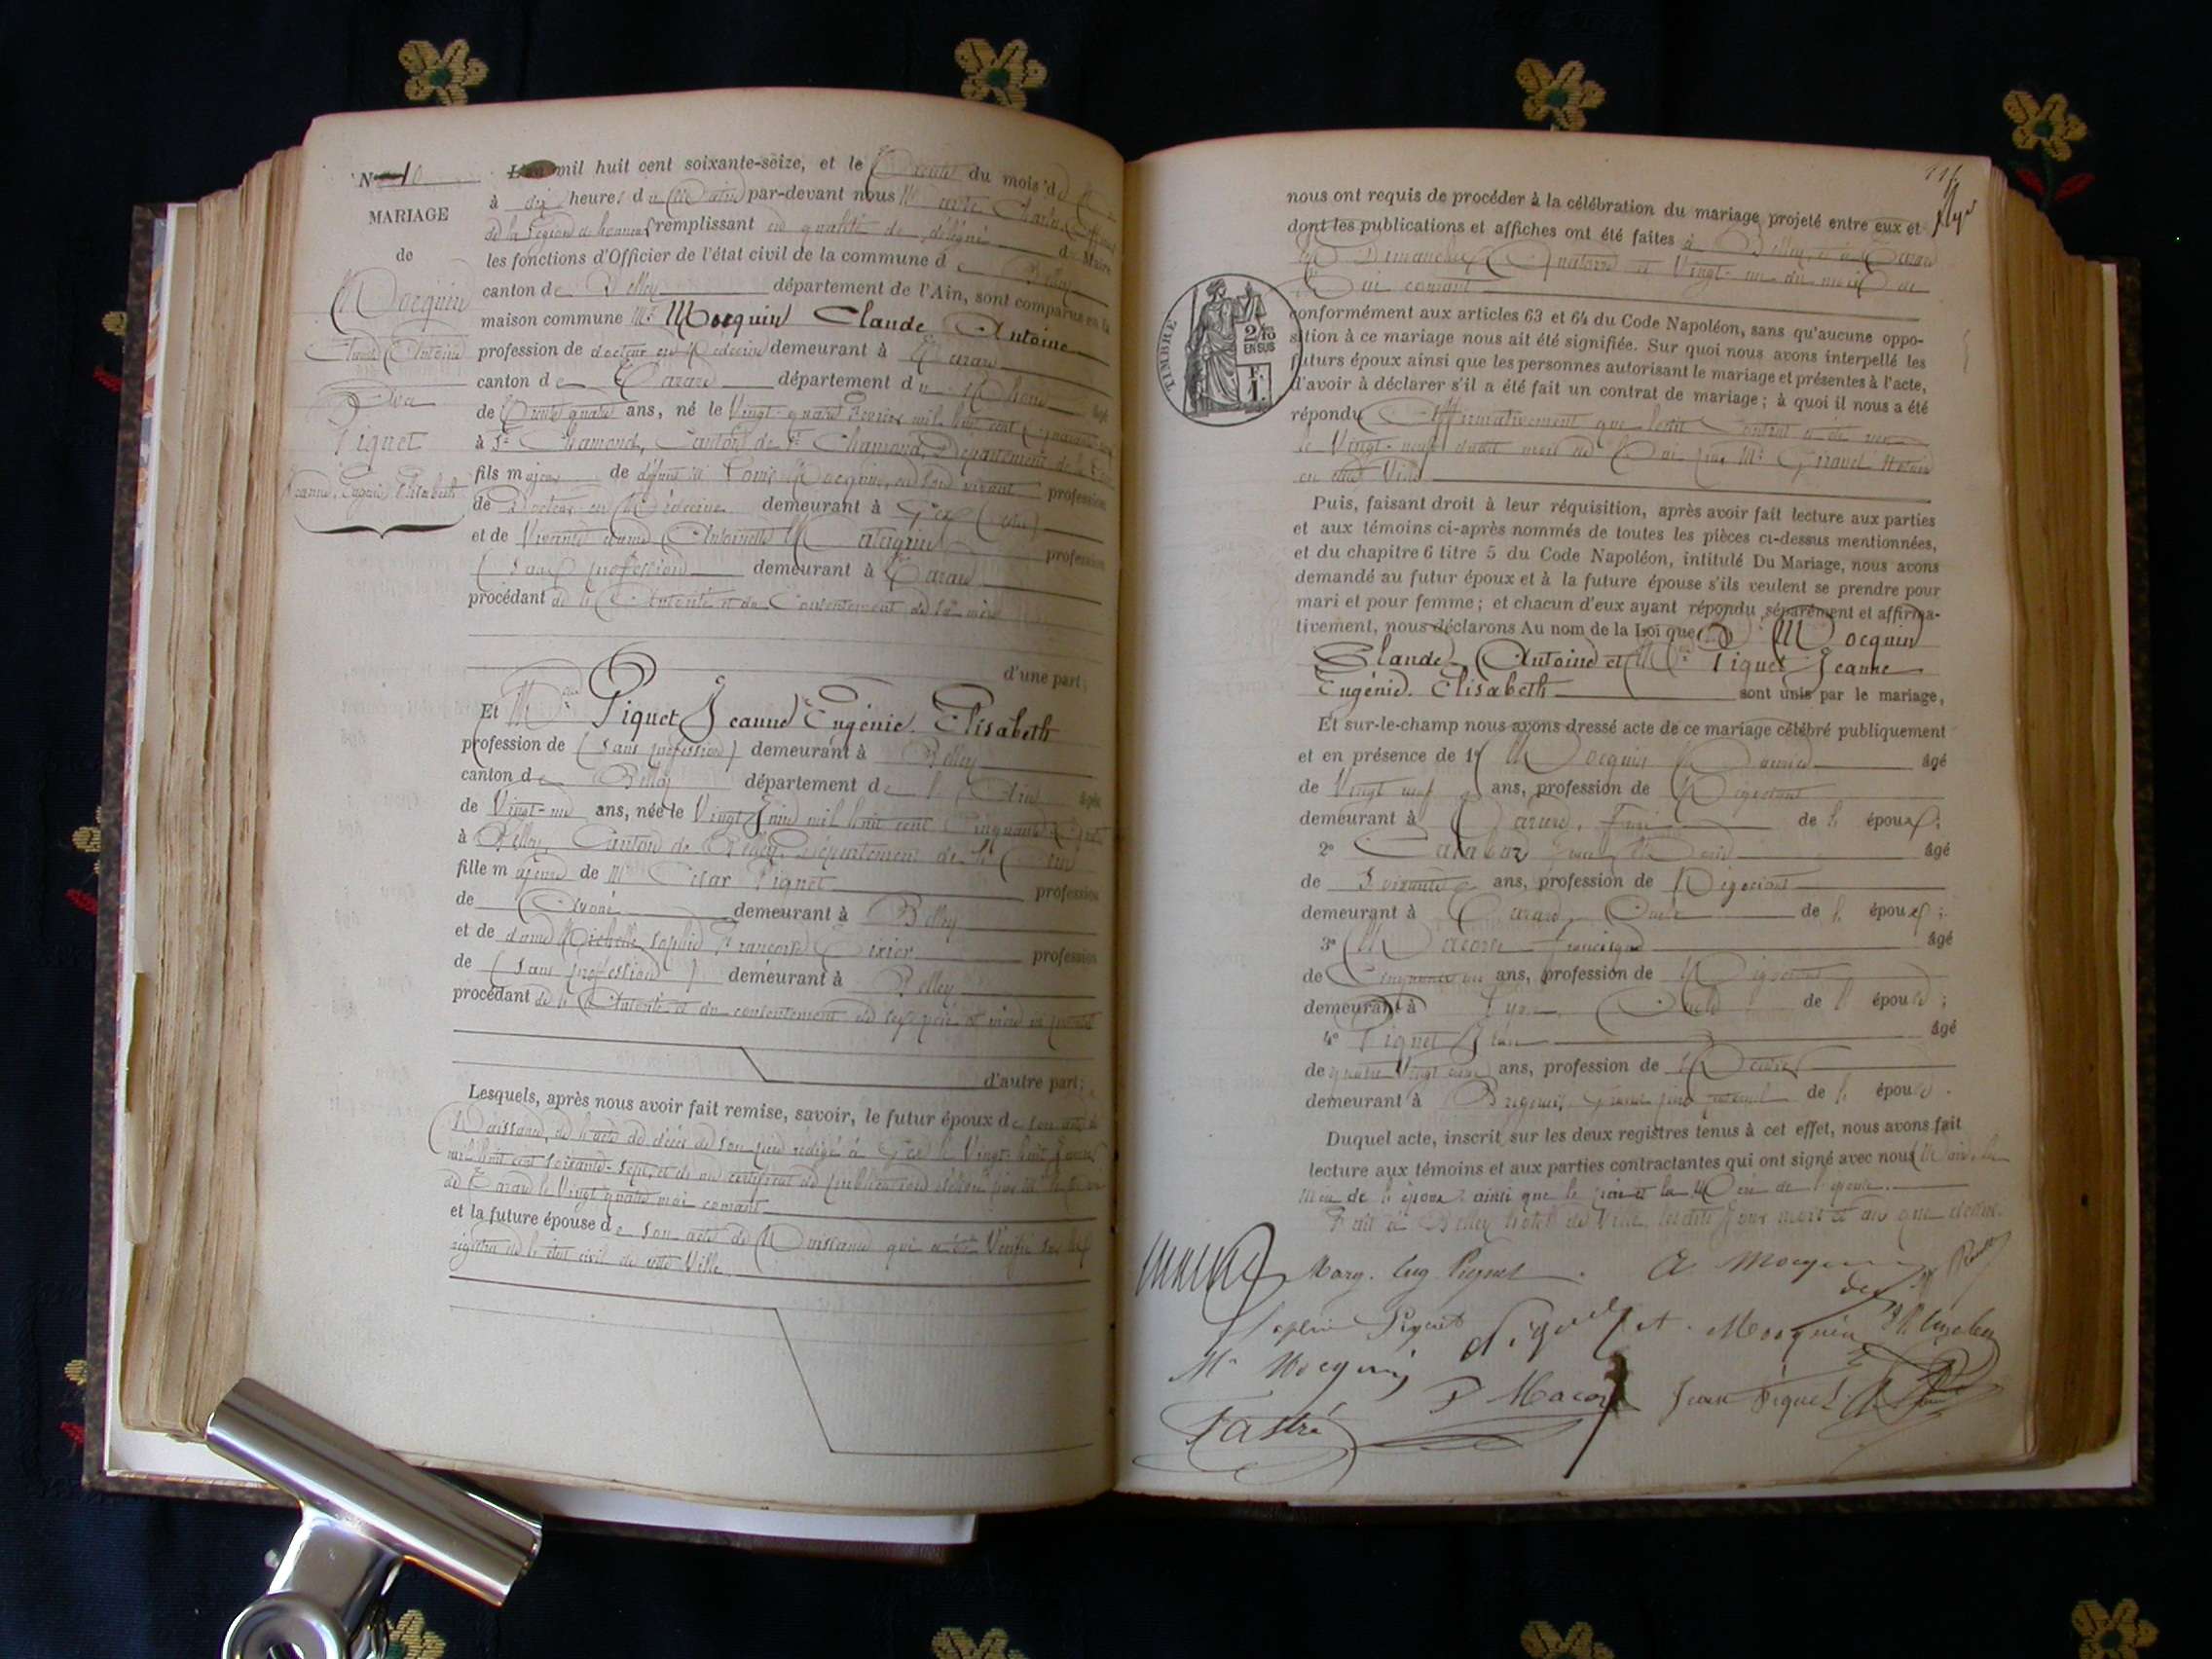 N° 10
MARIAGE
de
Mocquin
Claude Antoine
Avec
Piquet
Jeanne, Eugénie Elisabeth
L'an mil huit cent soixante-seize, et le Trente du mois de
à dix heures du Matin par-devant nous
de la Légion de honneur remplissant en qualité de délégué du Maire
les fonctions d'Officier de l'état civil de la commune de Belley
canton de Belley département de l'Ain, sont comparus en la
maison commune Mr Mocquin Claude Antoine
profession de docteur en Médecine demeurant à Tarare
canton de Tarare département du Rhône âgé
de Trente quatre ans, né le Vingt-quatre Février mil huit cent quarante
à St Chamond, Canton de St Chamond, Département de la Loire
fils majeur de défunt Mr Louis Mocquin, en son vivant profession
de Docteur en Médecine demeurant à Gex (Ain)
et de Vivante dame Antoinette profession
(sans profession) demeurant à Tarare
procédant de l'Autorité et du Consentement de sa mère
d'une part;
Et Mlle Piquet Jeanne Eugénie Elisabeth
profession de (sans profession) demeurant à Belley
canton de Belley département de l'Ain âgée
de Vingt-un ans, née le Vingt Juin mil huit cent Cinquante quatre
à Belley, Canton de Belley, Département de l'Ain
fille majeure de Mr César Piquet profession
de Avoué demeurant à Belley
et de dame Michelle Sophie Françoise Tixier profession
de (sans profession) demeurant à Belley
procédant de l'Autorité et du consentement de ses père et mère ici présents
d'autre part;
Lesquels, après nous avoir fait remise, savoir, le futur époux de son acte de
Naissance, de l'acte de décès de son père rédigé à Gex le Vingt-huit
mil huit cent soixante-sept, et de un certificat de publications délivré par Mr le Maire
de Tarare le Vingt quatre mai courant
et la future épouse de son acte de Naissance qui a été Vérifié sur les
registres de l'état civil de cette Ville
nous ont requis de procéder à la célébration du mariage projeté entre eux et
dont les publications et affiches ont été faites à Belley, et à Tarare
les Dimanches Quatorze et Vingt-un du mois de
Mai courant
TIMBRE
2/10
EN SUS
F.
1.
conformément aux articles 63 et 64 du Code Napoléon, sans qu'aucune oppo-
sition à ce mariage nous ait été signifiée. Sur quoi nous avons interpellé les
futurs époux ainsi que les personnes autorisant le mariage et présentes à l'acte,
d'avoir à déclarer s'il a été fait un contrat de mariage; à quoi il nous a été
répondu Affirmativement que ledit Contrat a été reçu
le Vingt-neuf dudit mois de Mai par Mr Notaire
en cette Ville
Puis, faisant droit à leur réquisition, après avoir fait lecture aux parties
et aux témoins ci-après nommés de toutes les pièces ci-dessus mentionnées,
et du chapitre 6 titre 5 du Code Napoléon, intitulé Du Mariage, nous avons
demandé au futur époux et à la future épouse s'ils veulent se prendre pour
mari et pour femme; et chacun d'eux ayant répondu séparément et affirma-
tivement, nous déclarons Au nom de la Loi que Mr Mocquin
Claude, Antoine et Mlle Piquet Jeanne
Eugénie. Elisabeth sont unis par le mariage,
Et sur-le-champ nous avons dressé acte de ce mariage célébré publiquement
et en présence de 1° Mocquin Maurice âgé
de Vingt neuf ans, profession de Négociant
demeurant à Tarare, Frère de l'époux;
2° âgé
de Soixante ans, profession de Négociant
demeurant à Tarare, Oncle de l'époux;
3° Macors Francisque âgé
de ans, profession de Négociant
demeurant à Lyon, Oncle de l'épouse;
4° Piquet Jean âgé
de quatre Vingt ans, profession de Rentier
demeurant à Grand père paternel de l'épouse.
Duquel acte, inscrit sur les deux registres tenus à cet effet, nous avons fait
lecture aux témoins et aux parties contractantes qui ont signé avec nous
Mère de l'époux ainsi que le père et la Mère de l'épouse.
Fait à Belley hôtel de Ville, lesdits jour mois et an que dessus.
Marg. Eug Piquet A Mocquin
Sophie Piquet Piquet A. Mocquin
M Mocquin F Macors Jean Piquet
Fastré